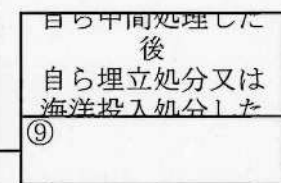 自ら中間処理した
後
自ら埋立処分又は
海洋投入処分した
⑨